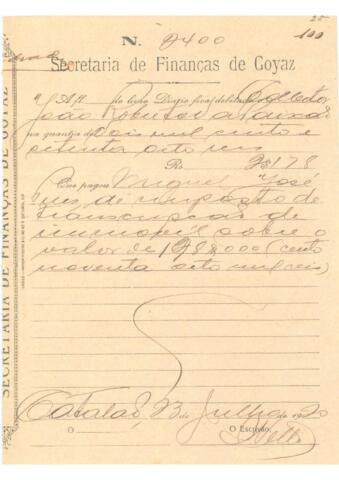 25
100
N. 2400
Secretaria de Finanças de Goyaz
A fl. do livro Diario fica debitado o Collector
João
na quantia de Dois mil cento e
setenta oito reis
Rs 2$178
Que pagou Miguel José
de imposto de
transcripção de
immovel sobre o
valor de 198$000 (cento
noventa oito mil reis)
Catalão, 23 de Julho de 1920
O O Escrivão,
Netto
SECRETARIA DE FINANÇAS DE GOYAZ